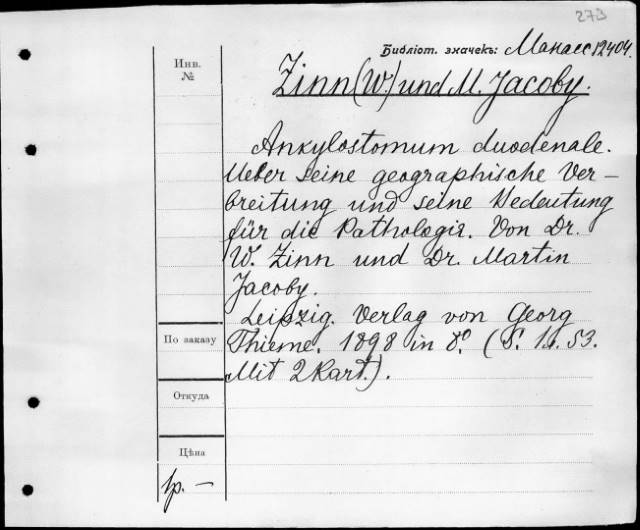 273
Библіот. значекъ: Манасс 12404.
Инв.
№
Zinn (W.) und M. Jacoby.
Ankylostomum duodenale.
Ueber seine geographische Ver-
breitung und seine Bedeutung
für die Pathologie. Von Dr.
W. Zinn und Dr. Martin
Jacoby.
Leipzig. Verlag von Georg
Thieme. 1898 in 8º. (S.  53.
Mit 2 Kart.).
По заказу
Откуда
Цѣна
1р. —